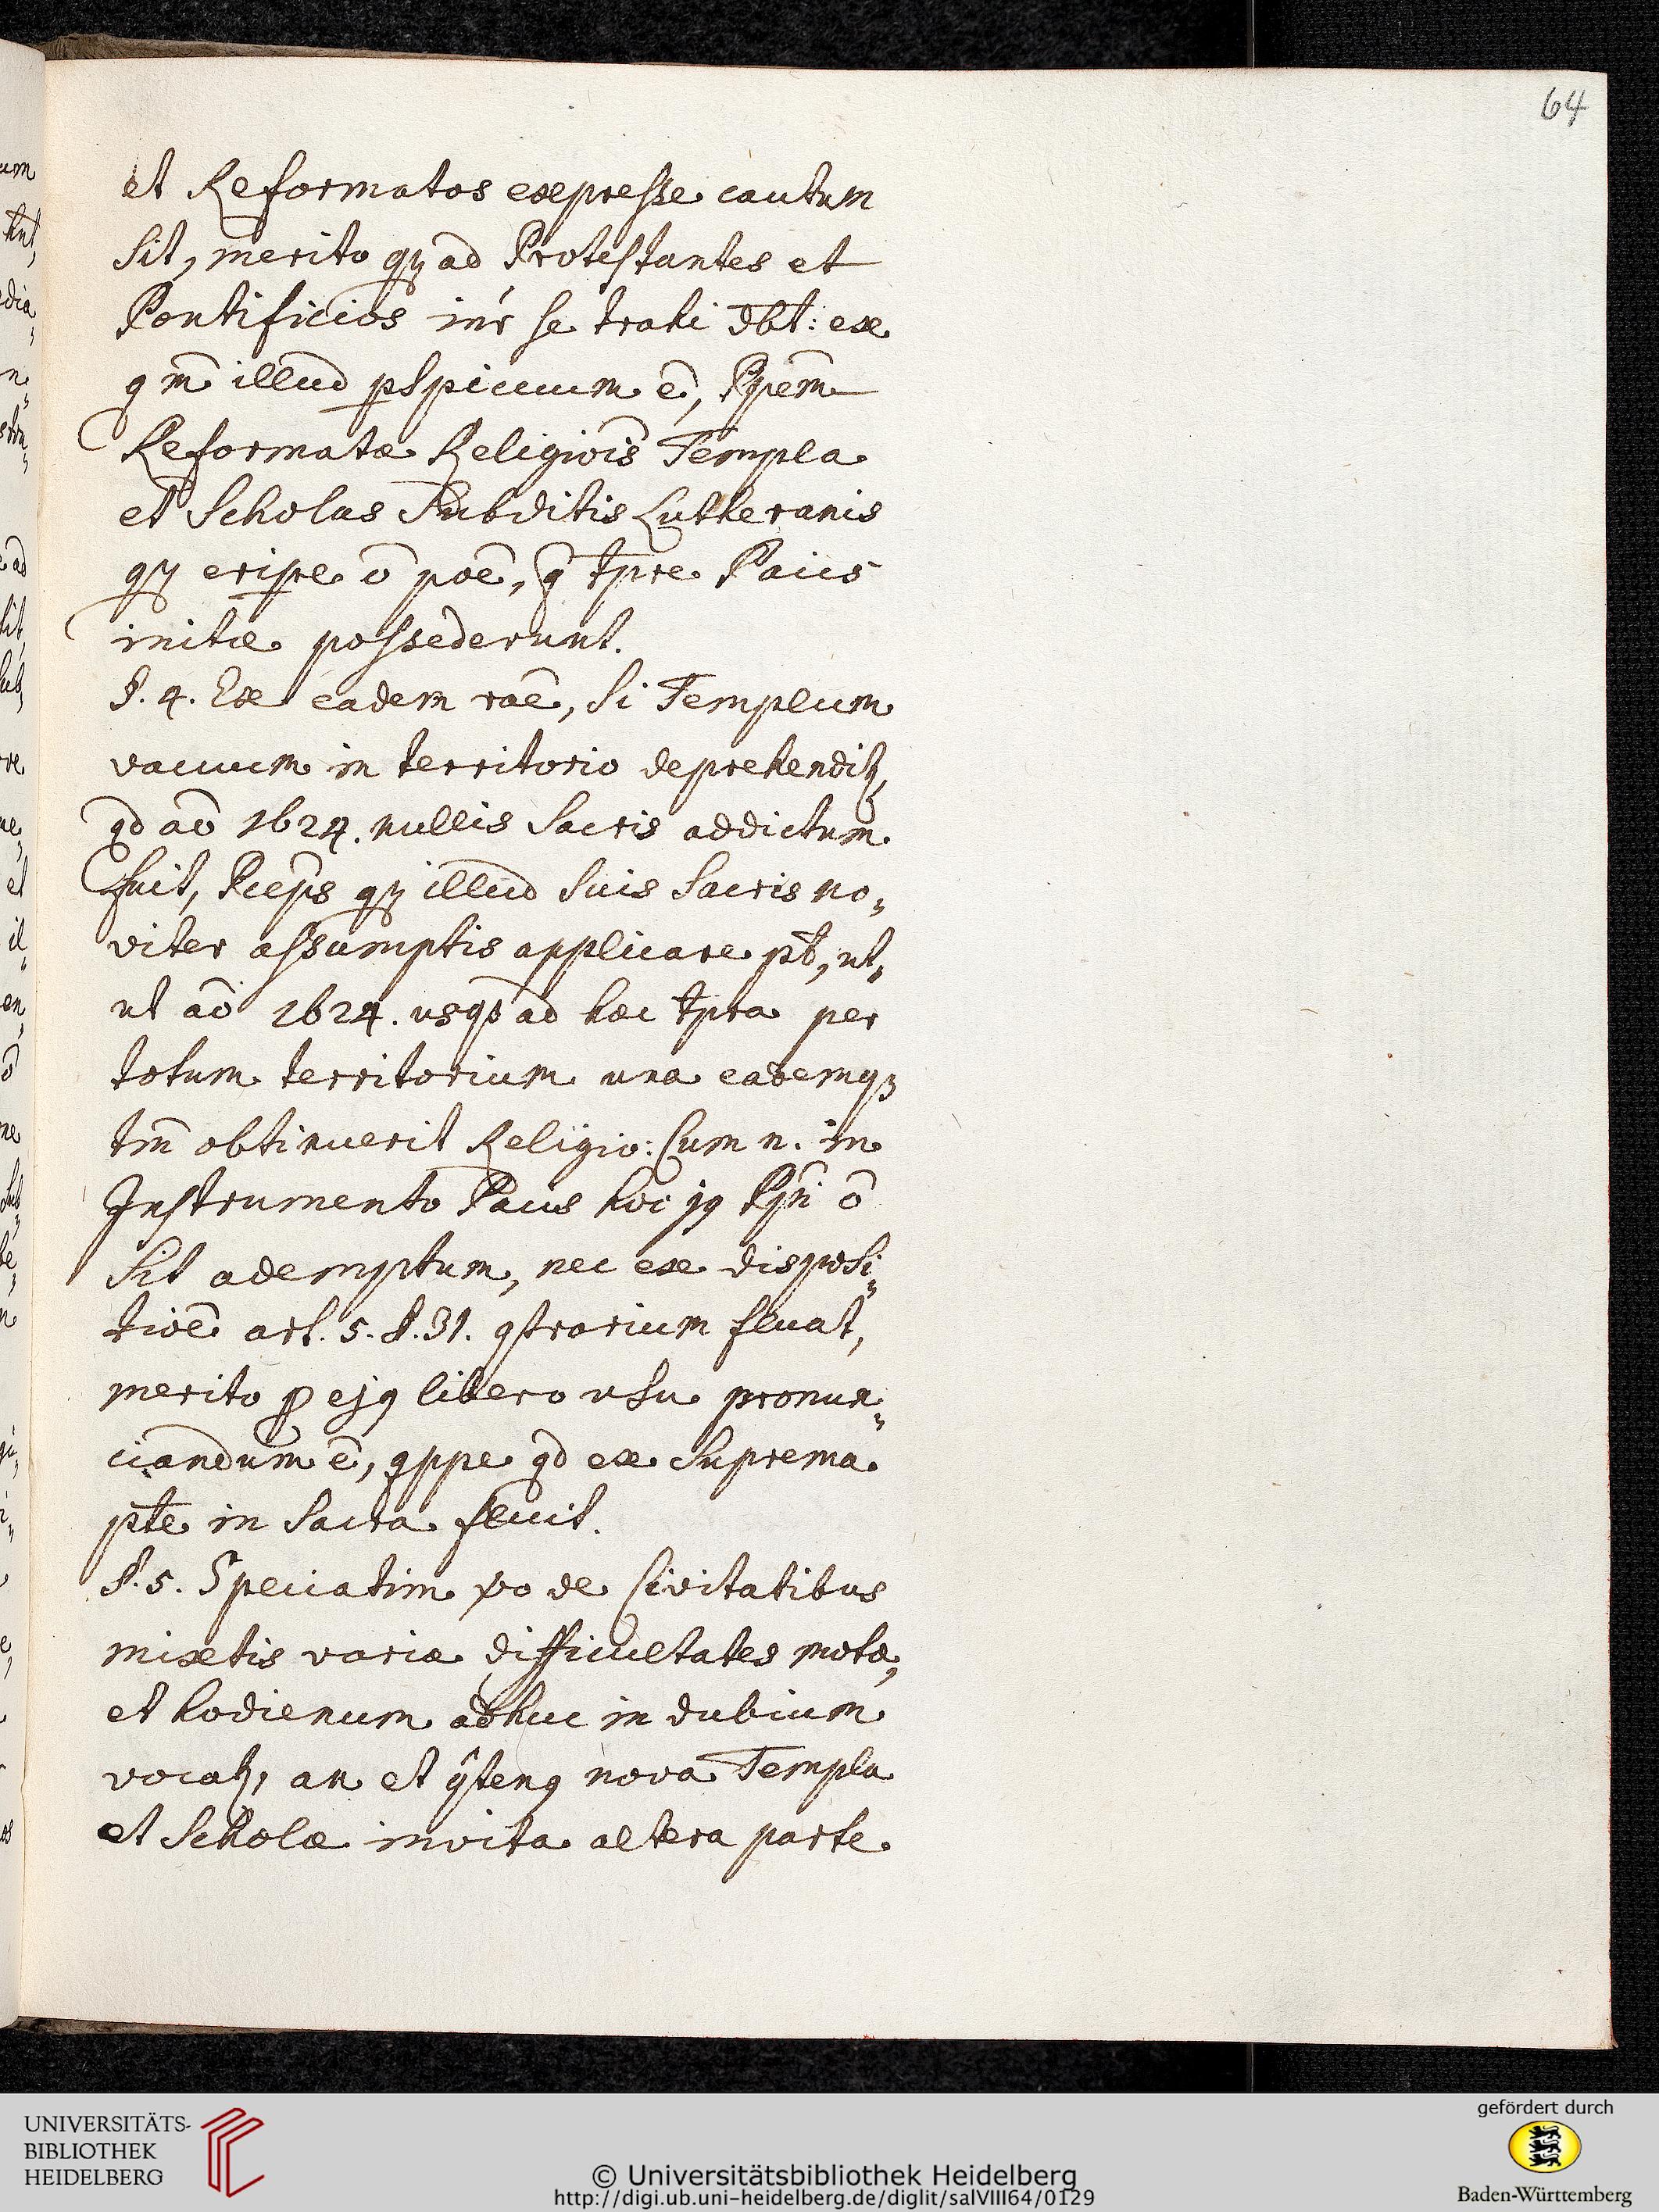 64
et Reformatos expresse cautum
sit, merito qꝫ ad Protestantes et
Pontificios inr̃ se trahi dbt̄: ex
qm̄ illud pspicuum ē, Ppem̄
Reformatæ Religiōis Templa
et Scholas Subditis Lutheranis
qꝫ eripe ō poē, q̄ tpre Pacis
initæ possederunt.
§. 4. Ex eadem raē, si Templum
vacuum in territorio deprehendiꝫ,
qd aō 1624. nullis Sacris addictum
fuit, Pceps̄ qꝫ illud suis Sacris no„
viter assumptis applicare pt̄, ut„
ut aō 1624. usqꝫ ad hæc tpra per
totum territorium una eademqꝫ
tm̄ obtinuerit Religio: Cum n. in
Instrumento Pacis hoc jꝰ Ppi̅ ō
sit ademptum, nec ex disposi„
tiōe art. 5. §. 31. ꝯtrarium fluat,
merito ꝓ ejꝰ libero usu pronun„
ciandum ē, qppe qd ex suprema
ptē in Sacra fluit.
§. 5. Speciatim vo de Civitatibus
mixtis variæ difficultates motæ,
et hodienum adhuc in dubium
vocaꝫ, an et q̄tenꝰ nova Templa
et Scholæ invita altera parte
UNIVERSITÄTS-
BIBLIOTHEK
HEIDELBERG
© Universitätsbibliothek Heidelberg
http://digi.ub.uni-heidelberg.de/diglit/salVIII64/0129
gefördert durch
Baden-Württemberg